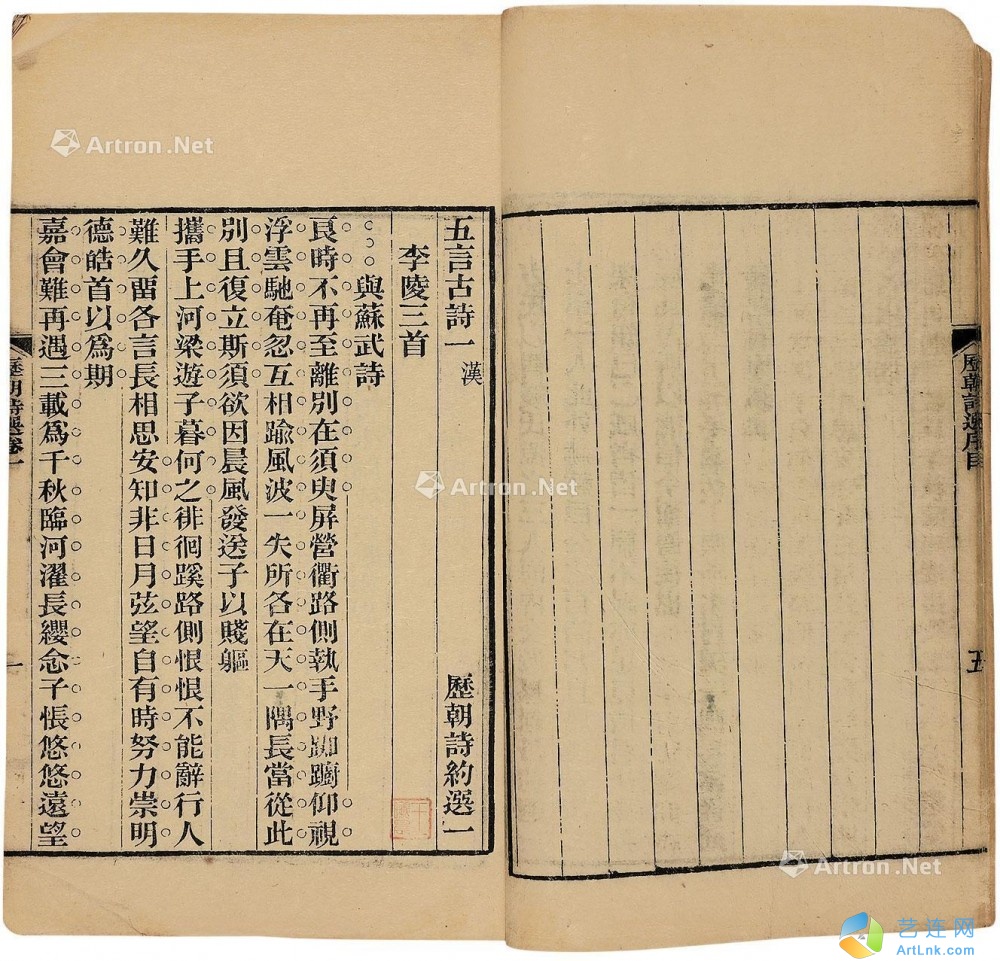 歷朝詩選序目
五
五言古詩一 漢 歷朝詩約選一
李陵三首
與蘇武詩
良時不再至離別在須臾屏營衢路側執手野踟躕仰視
浮雲馳奄忽互相踰風波一失所各在天一隅長當從此
別且復立斯須欲因晨風發送子以賤軀
攜手上河梁遊子暮何之徘徊蹊路側恨恨不能辭行人
難久畱各言長相思安知非日月弦望自有時努力崇明
德皓首以爲期
嘉會難再遇三載爲千秋臨河濯長纓念子悵悠悠遠望
歷朝詩選卷一
一
Artron.Net
Artron.Net
Artron.Net
艺连网
ArtLnk.com